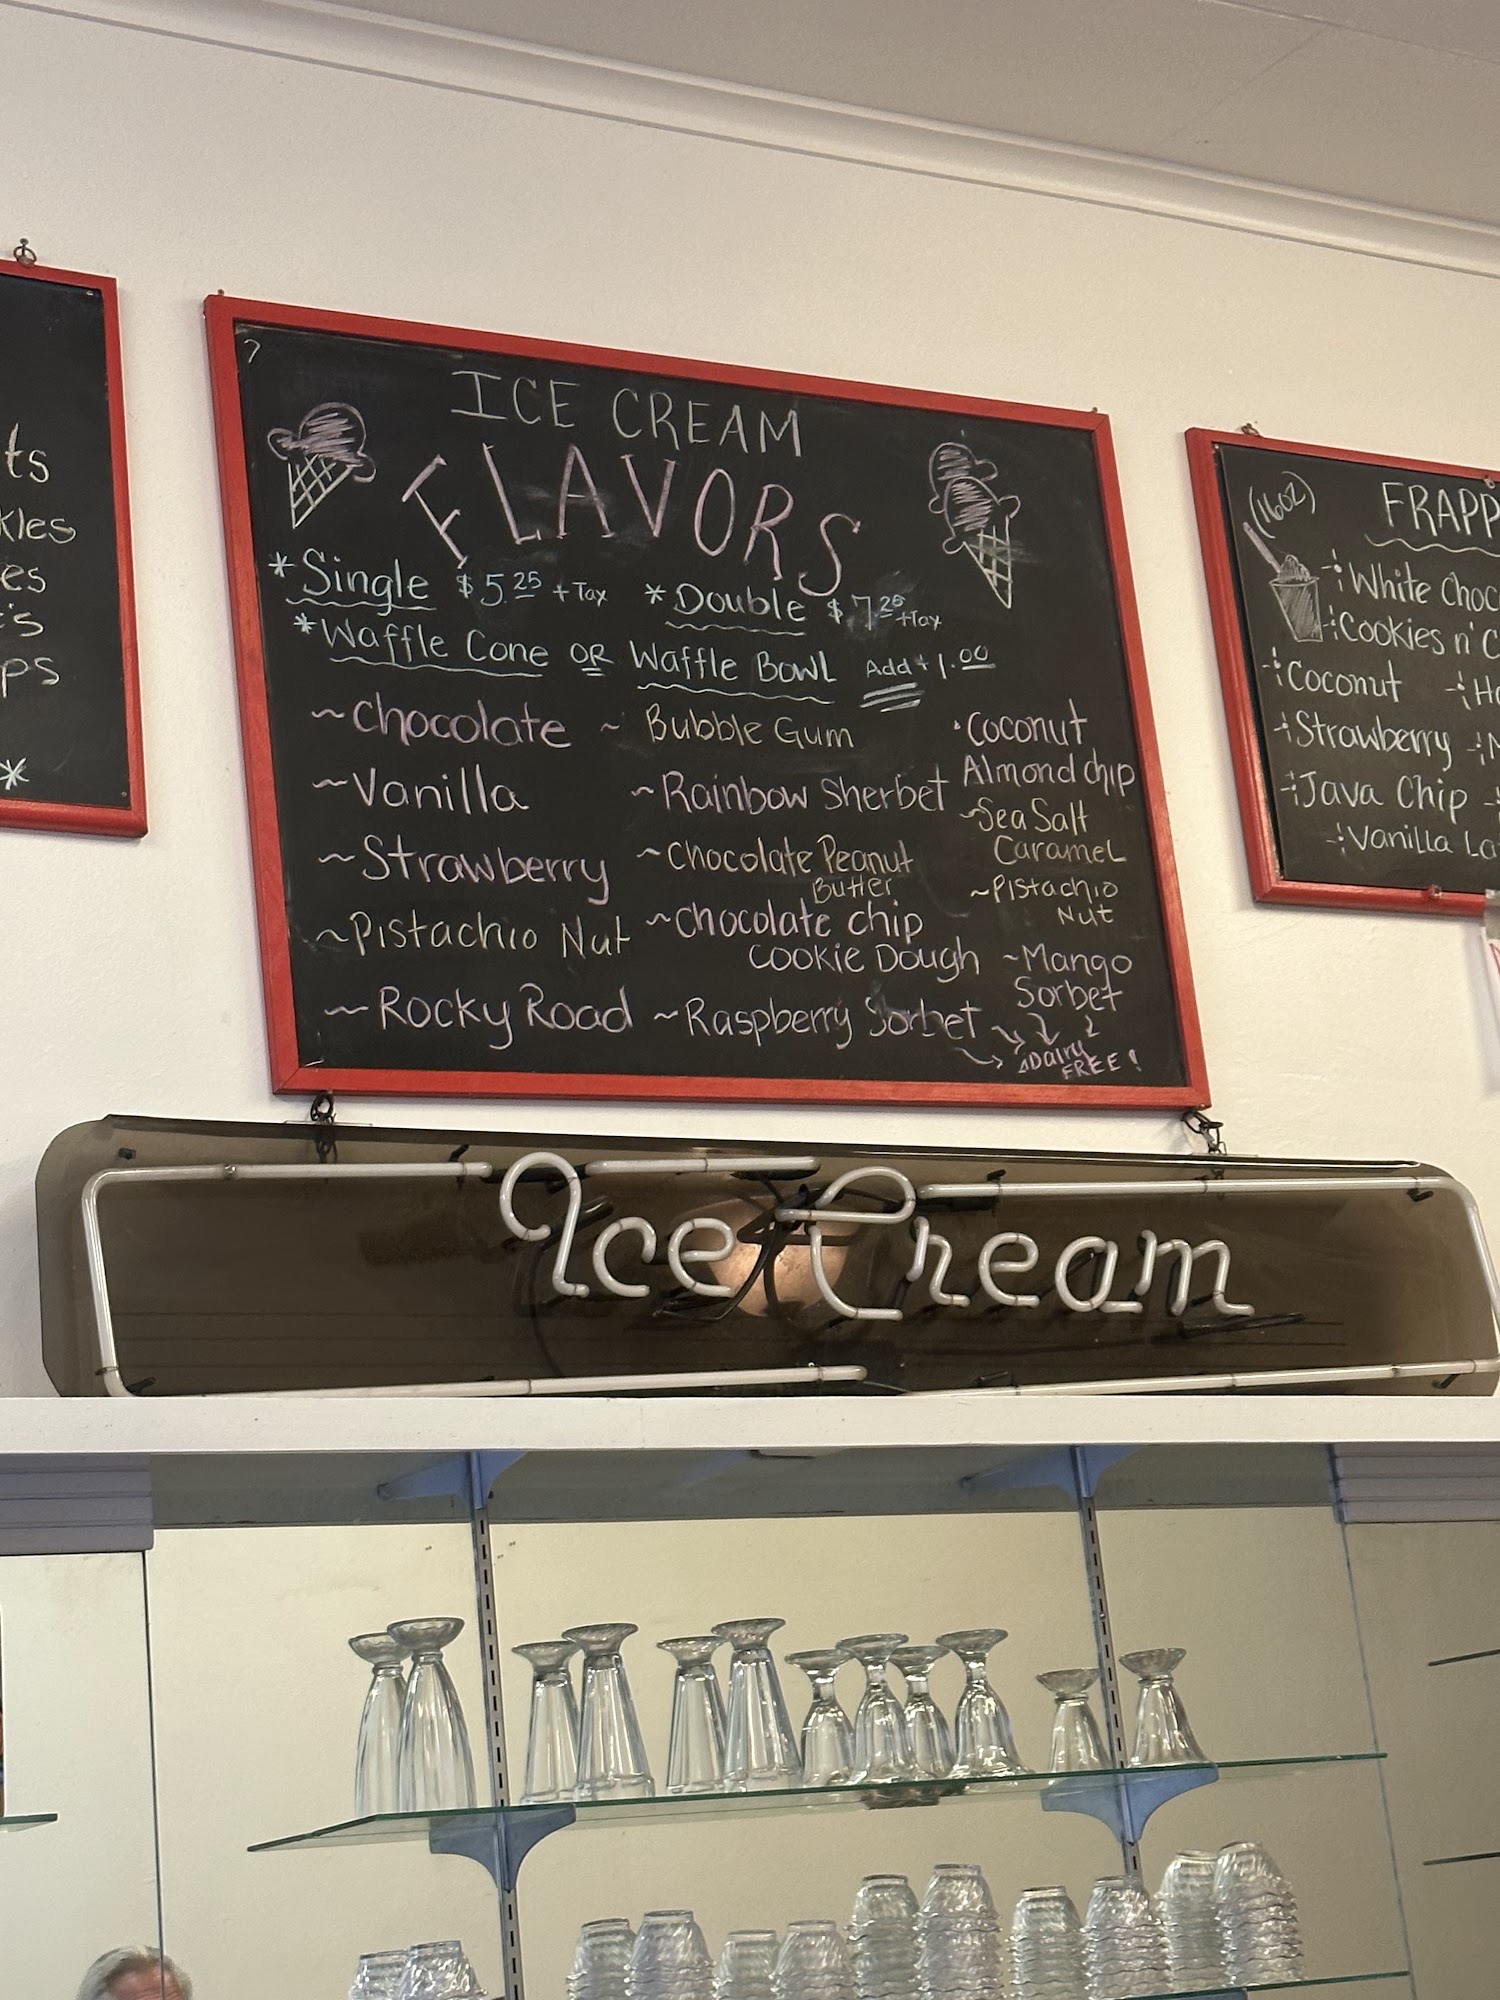 ts
kles
es
's
ps
*
ICE CREAM
FLAVORS
*Single $5.25 +Tax *Double $7.25 +Tax
*Waffle Cone OR Waffle Bowl Add + 1.00
~Chocolate
~Vanilla
~Strawberry
~Pistachio Nut
~Rocky Road
~Bubble Gum
~Rainbow Sherbet
~Chocolate Peanut
Butter
~Chocolate chip
Cookie Dough
~Raspberry Sorbet
Coconut
Almond chip
~Sea Salt
Caramel
~Pistachio
Nut
~Mango
Sorbet
Dairy
FREE!
(16oz)
FRAPP
White Choc
Cookies n' C
Coconut
Strawberry
Java Chip
Vanilla La
Ice Cream